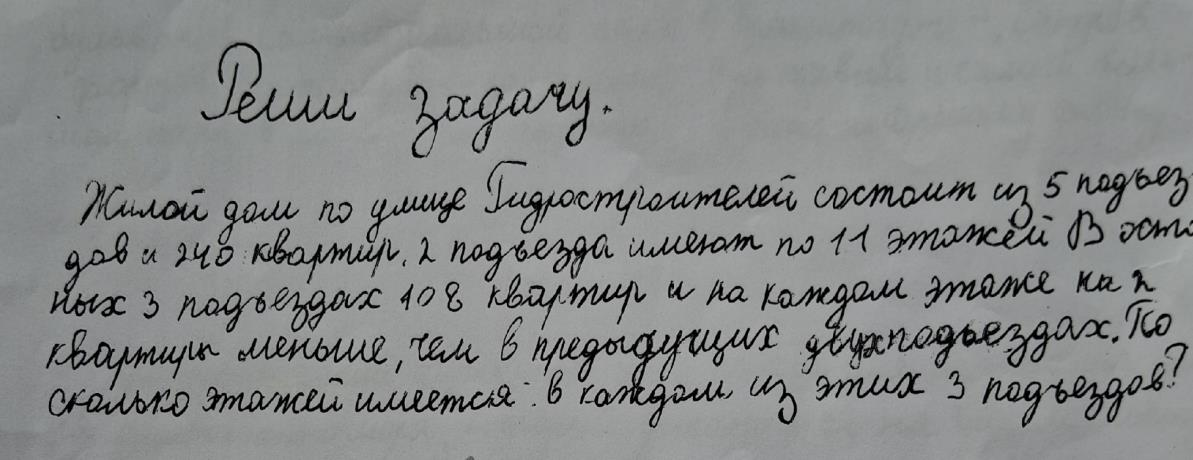 Реши задачу.
Жилой дом по улице Гидростроителей состоит из 5 подъез
дов и 240 квартир. 2 подъезда имеют по 11 этажей В оста
ных 3 подъездах 108 квартир и на каждом этаже на 2
квартиры меньше, чем в предыдущих двухподъездах. По
сколько этажей имеется в каждом из этих 3 подъездов?